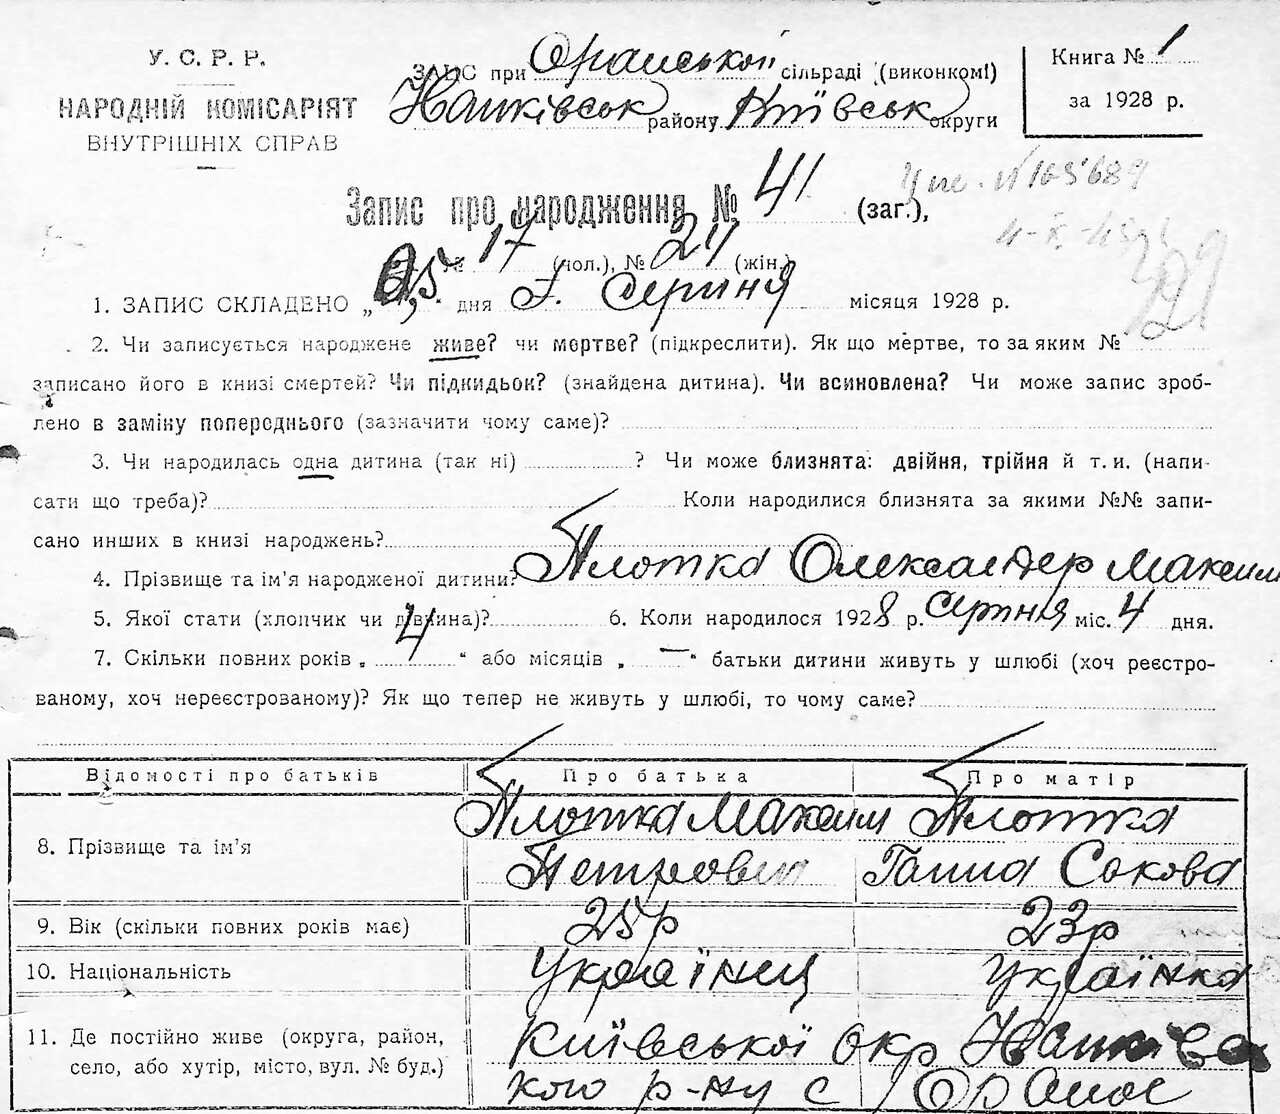 У. С. Р. Р.
НАРОДНІЙ КОМІСАРІЯТ
ВНУТРІШНІХ СПРАВ
ЗАПИС при Оранської сільраді (виконкомі)
района району Київськ округи
Книга № 1
за 1928 р.
Запис про народження № 41 (заг.),
№ 17 (чол.), № 24 (жін.)
165689
1. ЗАПИС СКЛАДЕНО „ 5 " дня Серпня місяця 1928 р.
2. Чи записується народжене живе? чи мертве? (підкреслити). Як що мертве, то за яким №
записано його в книзі смертей? Чи підкидьок? (знайдена дитина). Чи всиновлена? Чи може запис зроб-
лено в заміну попереднього (зазначити чому саме)?
3. Чи народилась одна дитина (так ні) ? Чи може близнята: двійня, трійня й т. и. (напи-
сати що треба)? Коли народилися близнята за якими №№ запи-
сано инших в книзі народжень?
4. Прізвище та ім'я народженої дитини? Плотка Олександер Максим
5. Якої стати (хлопчик чи дівчина)? 6. Коли народилося 1928 р. Серпня міс. 4 дня.
7. Скільки повних років „ 4 " або місяців „ — " батьки дитини живуть у шлюбі (хоч реєстро-
ваному, хоч нереєстрованому)? Як що тепер не живуть у шлюбі, то чому саме?
Відомості про батьків Про батька Про матір
8. Прізвище та ім'я Плотка Максим Петрович Плотка Ганна Сокова
9. Вік (скільки повних років має) 25р 23р
10. Національність Українець Українка
11. Де постійно живе (округа, район, Київської окр
село, або хутір, місто, вул. № буд.) кого р-ну с Оране